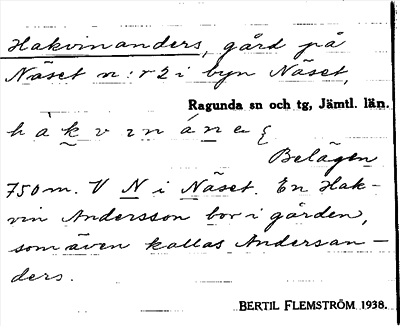 Hakvinanders, gård på
Näset n:r 2 i byn Näset,
Ragunda sn och tg, Jämtl. län.
Belägen
750 m. V N i Näset. En Hak-
vin Andersson bor i gården,
som även kallas Andersan-
ders.
BERTIL FLEMSTRÖM 1938.